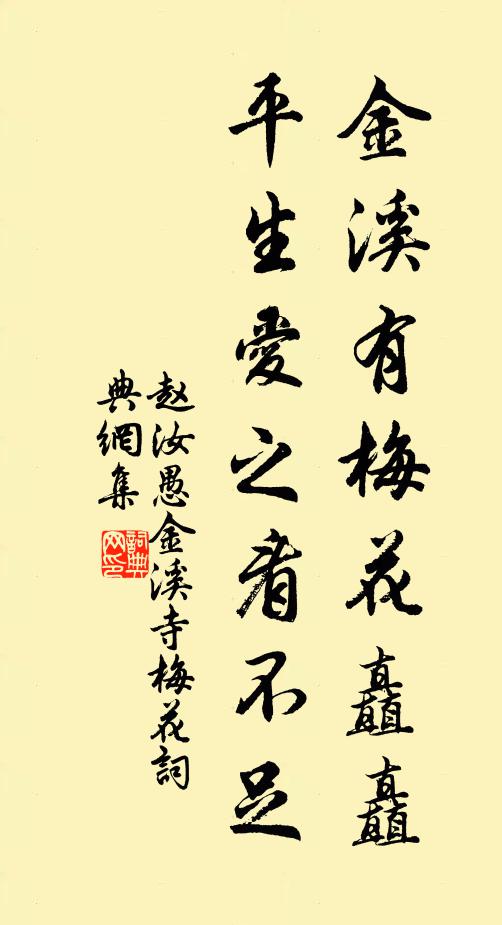 金溪有梅花矗矗
平生愛之者不足
赵汝愚金溪寺梅花詞
典網集
詞典
网印